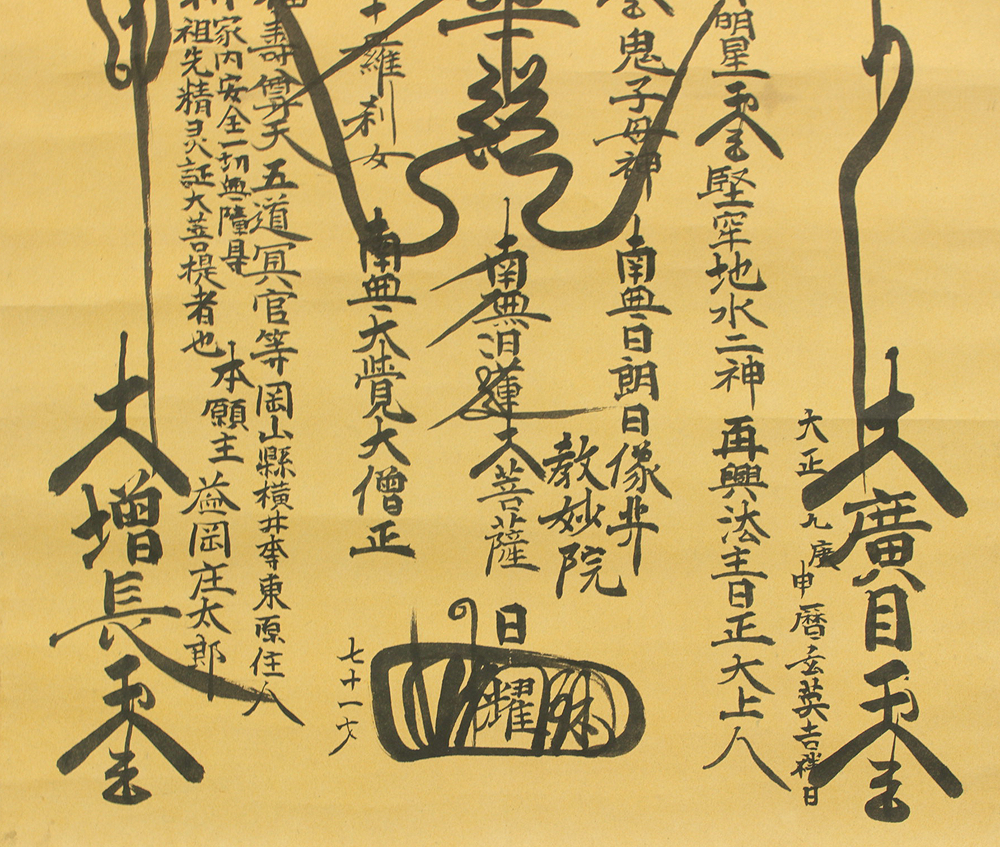 大廣目天王
大正九庚申暦玄英吉祥日
明星天王 堅牢地水二神 再興法主日正大上人
鬼子母神
南無日朗日像
教妙院
華経
南無日蓮大菩薩
日耀
十羅刹女
南無大覚大僧正
七十一才
福寿尊天 五道冥官等 岡山縣横井李東原住人
家内安全一切無障
本願主 益岡庄太郎
祖先精灵証大菩提者也
大增長天王